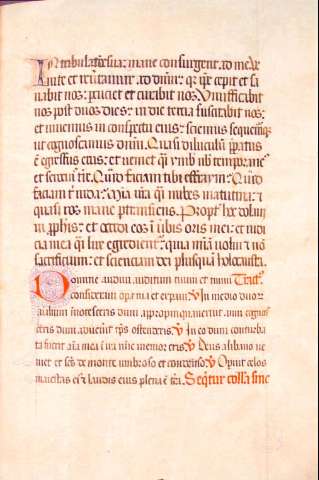 In tribulatõe sua: mane consurgent ad me. Ve
nite et reũtamur ad dñm: qr ip̃e cepit et sa
nabit nos: percuciet et curabit nos. Viuificabit
nos post duos dies: in die tercia suscitabit nos:
et uiuemus in conspectu eius: sciemus sequemurq;
ut cognoscamus dñm. Quasi diluculũ p̃paratus
ẽ egressus eius: et ueniet q̃i ymb nob̃ temporaneus
et serotin terre. Quid faciam tibi effraym: Quid
faciam t iuda? Mia vr̃a q̃i nubes matutina: t
quasi ros mane pertransiens. Propt̃ hoc dolaui
in prophis: et occidi eos ĩ ũbis oris mei: et iudi
cia mea q̃i lux egredient. Quia mĩam uolui t nõ
sacrificium: et scienciam dei plusquã holocausta.
Domine audiui auditum tuum et timui Tract.
consideraui opera tua et expaui. V In medio duor
animalium innotesceris dum appropinquauerint anni cognos
ceris dum aduenerit tp̃s ostenderis. V In eo dum conturba
ta fuerit aĩa mea ĩ ira mĩe memor eris. V Deus a libano ue
niet et sc̃s de monte umbroso et condenso. V Operuit celos
maiestas eĩ t laudis eius plena ẽ tr̃a. Seqtur coll̃a sine